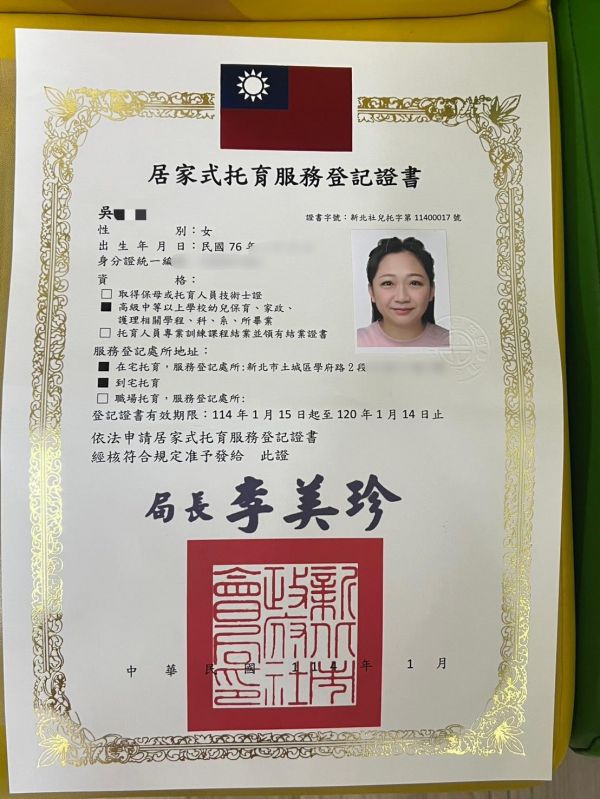 居家式托育服務登記證書
吳
證書字號：新北社兒托字第 11400017 號
性別：女
出生年月日：民國 76 年
身分證統一編
資格：
□ 取得保母或托育人員技術士證
■ 高級中等以上學校幼兒保育、家政、
護理相關學程、科、系、所畢業
□ 托育人員專業訓練課程結業並領有結業證書
服務登記處所地址：
■ 在宅托育，服務登記處所:新北市土城區學府路 2 段
■ 到宅托育
□ 職場托育，服務登記處所:
登記證書有效期限：114 年 1 月 15 日起至 120 年 1 月 14 日止
依法申請居家式托育服務登記證書
經核符合規定准予發給 此證
局長 李美珍
新北市政府社會局印
中華民國 114 年 1 月